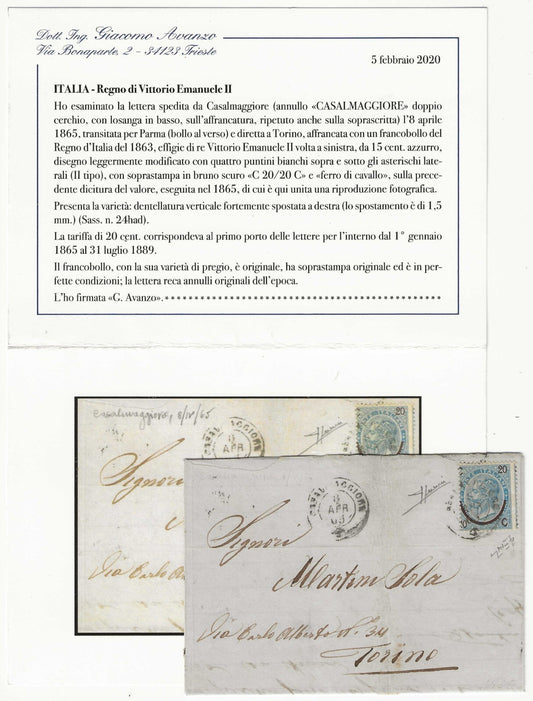 Dott. Ing. Giacomo Avanzo
Via Bonaparte, 2 - 34123 Trieste
5 febbraio 2020
ITALIA - Regno di Vittorio Emanuele II
Ho esaminato la lettera spedita da Casalmaggiore (annullo «CASALMAGGIORE» doppio
cerchio, con losanga in basso, sull'affrancatura, ripetuto anche sulla soprascritta) l'8 aprile
1865, transitata per Parma (bollo al verso) e diretta a Torino, affrancata con un francobollo del
Regno d'Italia del 1863, effigie di re Vittorio Emanuele II volta a sinistra, da 15 cent. azzurro,
disegno leggermente modificato con quattro puntini bianchi sopra e sotto gli asterischi late-
rali (II tipo), con soprastampa in bruno scuro «C 20/20 C» e «ferro di cavallo», sulla prece-
dente dicitura del valore, eseguita nel 1865, di cui è qui unita una riproduzione fotografica.
Presenta la varietà: dentellatura verticale fortemente spostata a destra (lo spostamento è di 1,5
mm.) (Sass. n. 24had).
La tariffa di 20 cent. corrispondeva al primo porto delle lettere per l'interno dal 1° gennaio
1865 al 31 luglio 1889.
Il francobollo, con la sua varietà di pregio, è originale, ha soprastampa originale ed è in per-
fette condizioni; la lettera reca annulli originali dell'epoca.
L'ho firmata «G. Avanzo».
Casalmaggiore, 8/IV/65
CASALMAGGIORE
8
APR
20
Signori
Via Carlo A
CASALMAGGIORE
8
APR
65
20
20 C
Signori
Martin Sola
Via Carlo Alberto N. 34
Torino